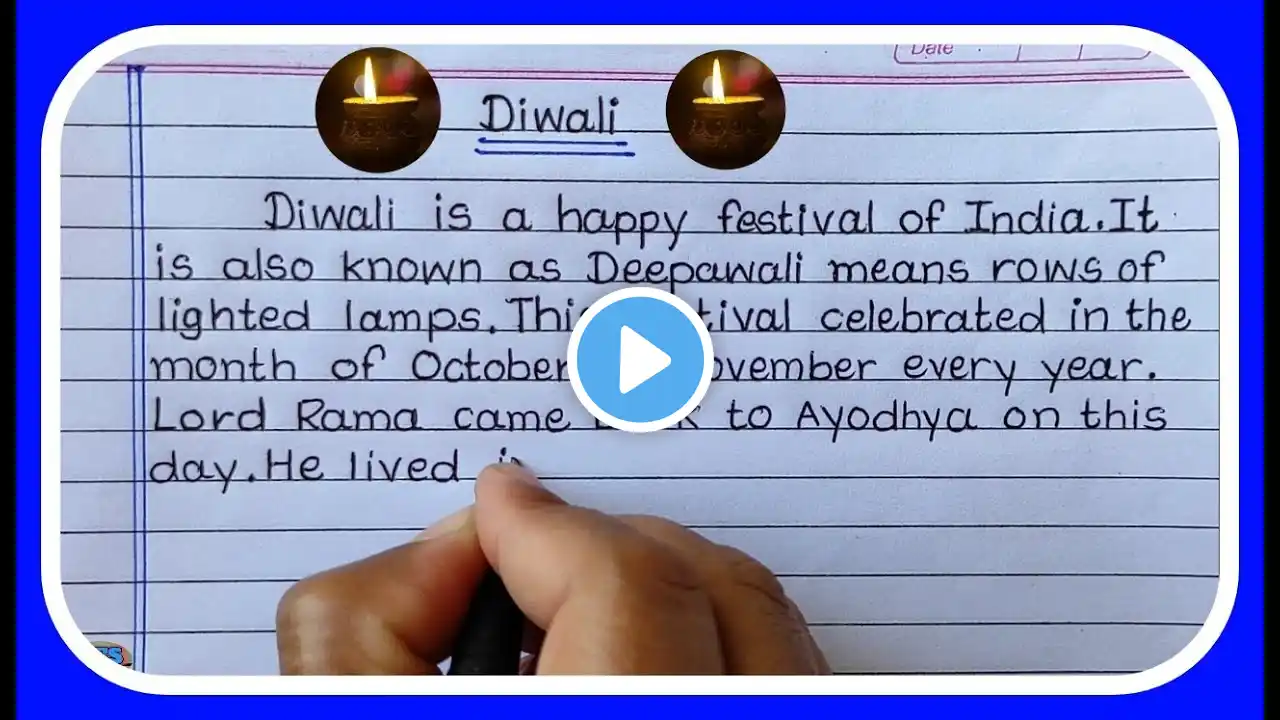 Date
Diwali
Diwali is a happy festival of India. It
is also known as Deepawali means rows of
lighted lamps. This celebrated in the
month of October every year.
Lord Rama came to Ayodhya on this
day. He lived